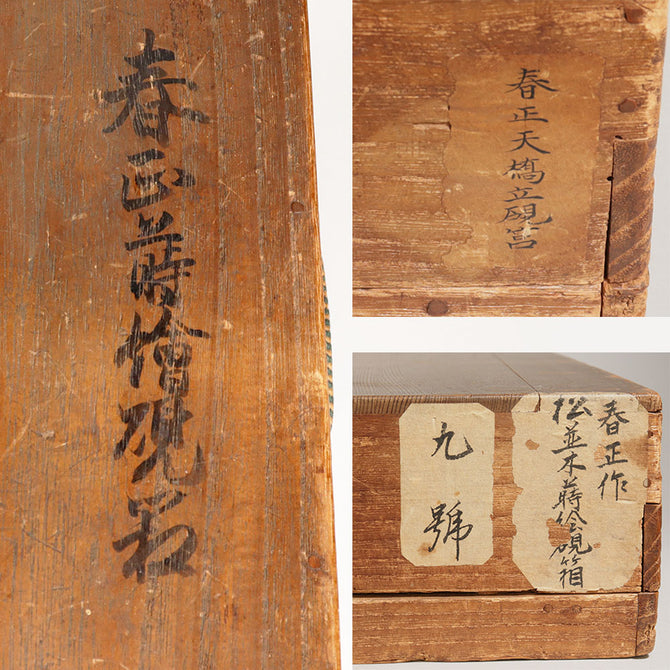 春正蒔繪硯箱
春正天橋立硯筥
春正作
松並木蒔絵硯箱
九號